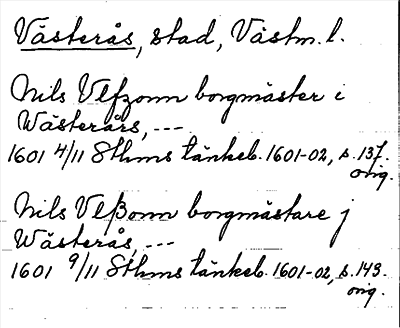 Västerås, stad, Västm.l.
Nils Vlfzonn borgmäster i
Wästerårs, ---
1601 4/11 Sthms tänkeb. 1601-02, s. 137.
orig.
Nils Vlßonn borgmästare j
Wästerås, ---
1601 9/11 Sthms tänkeb. 1601-02, s. 143.
orig.